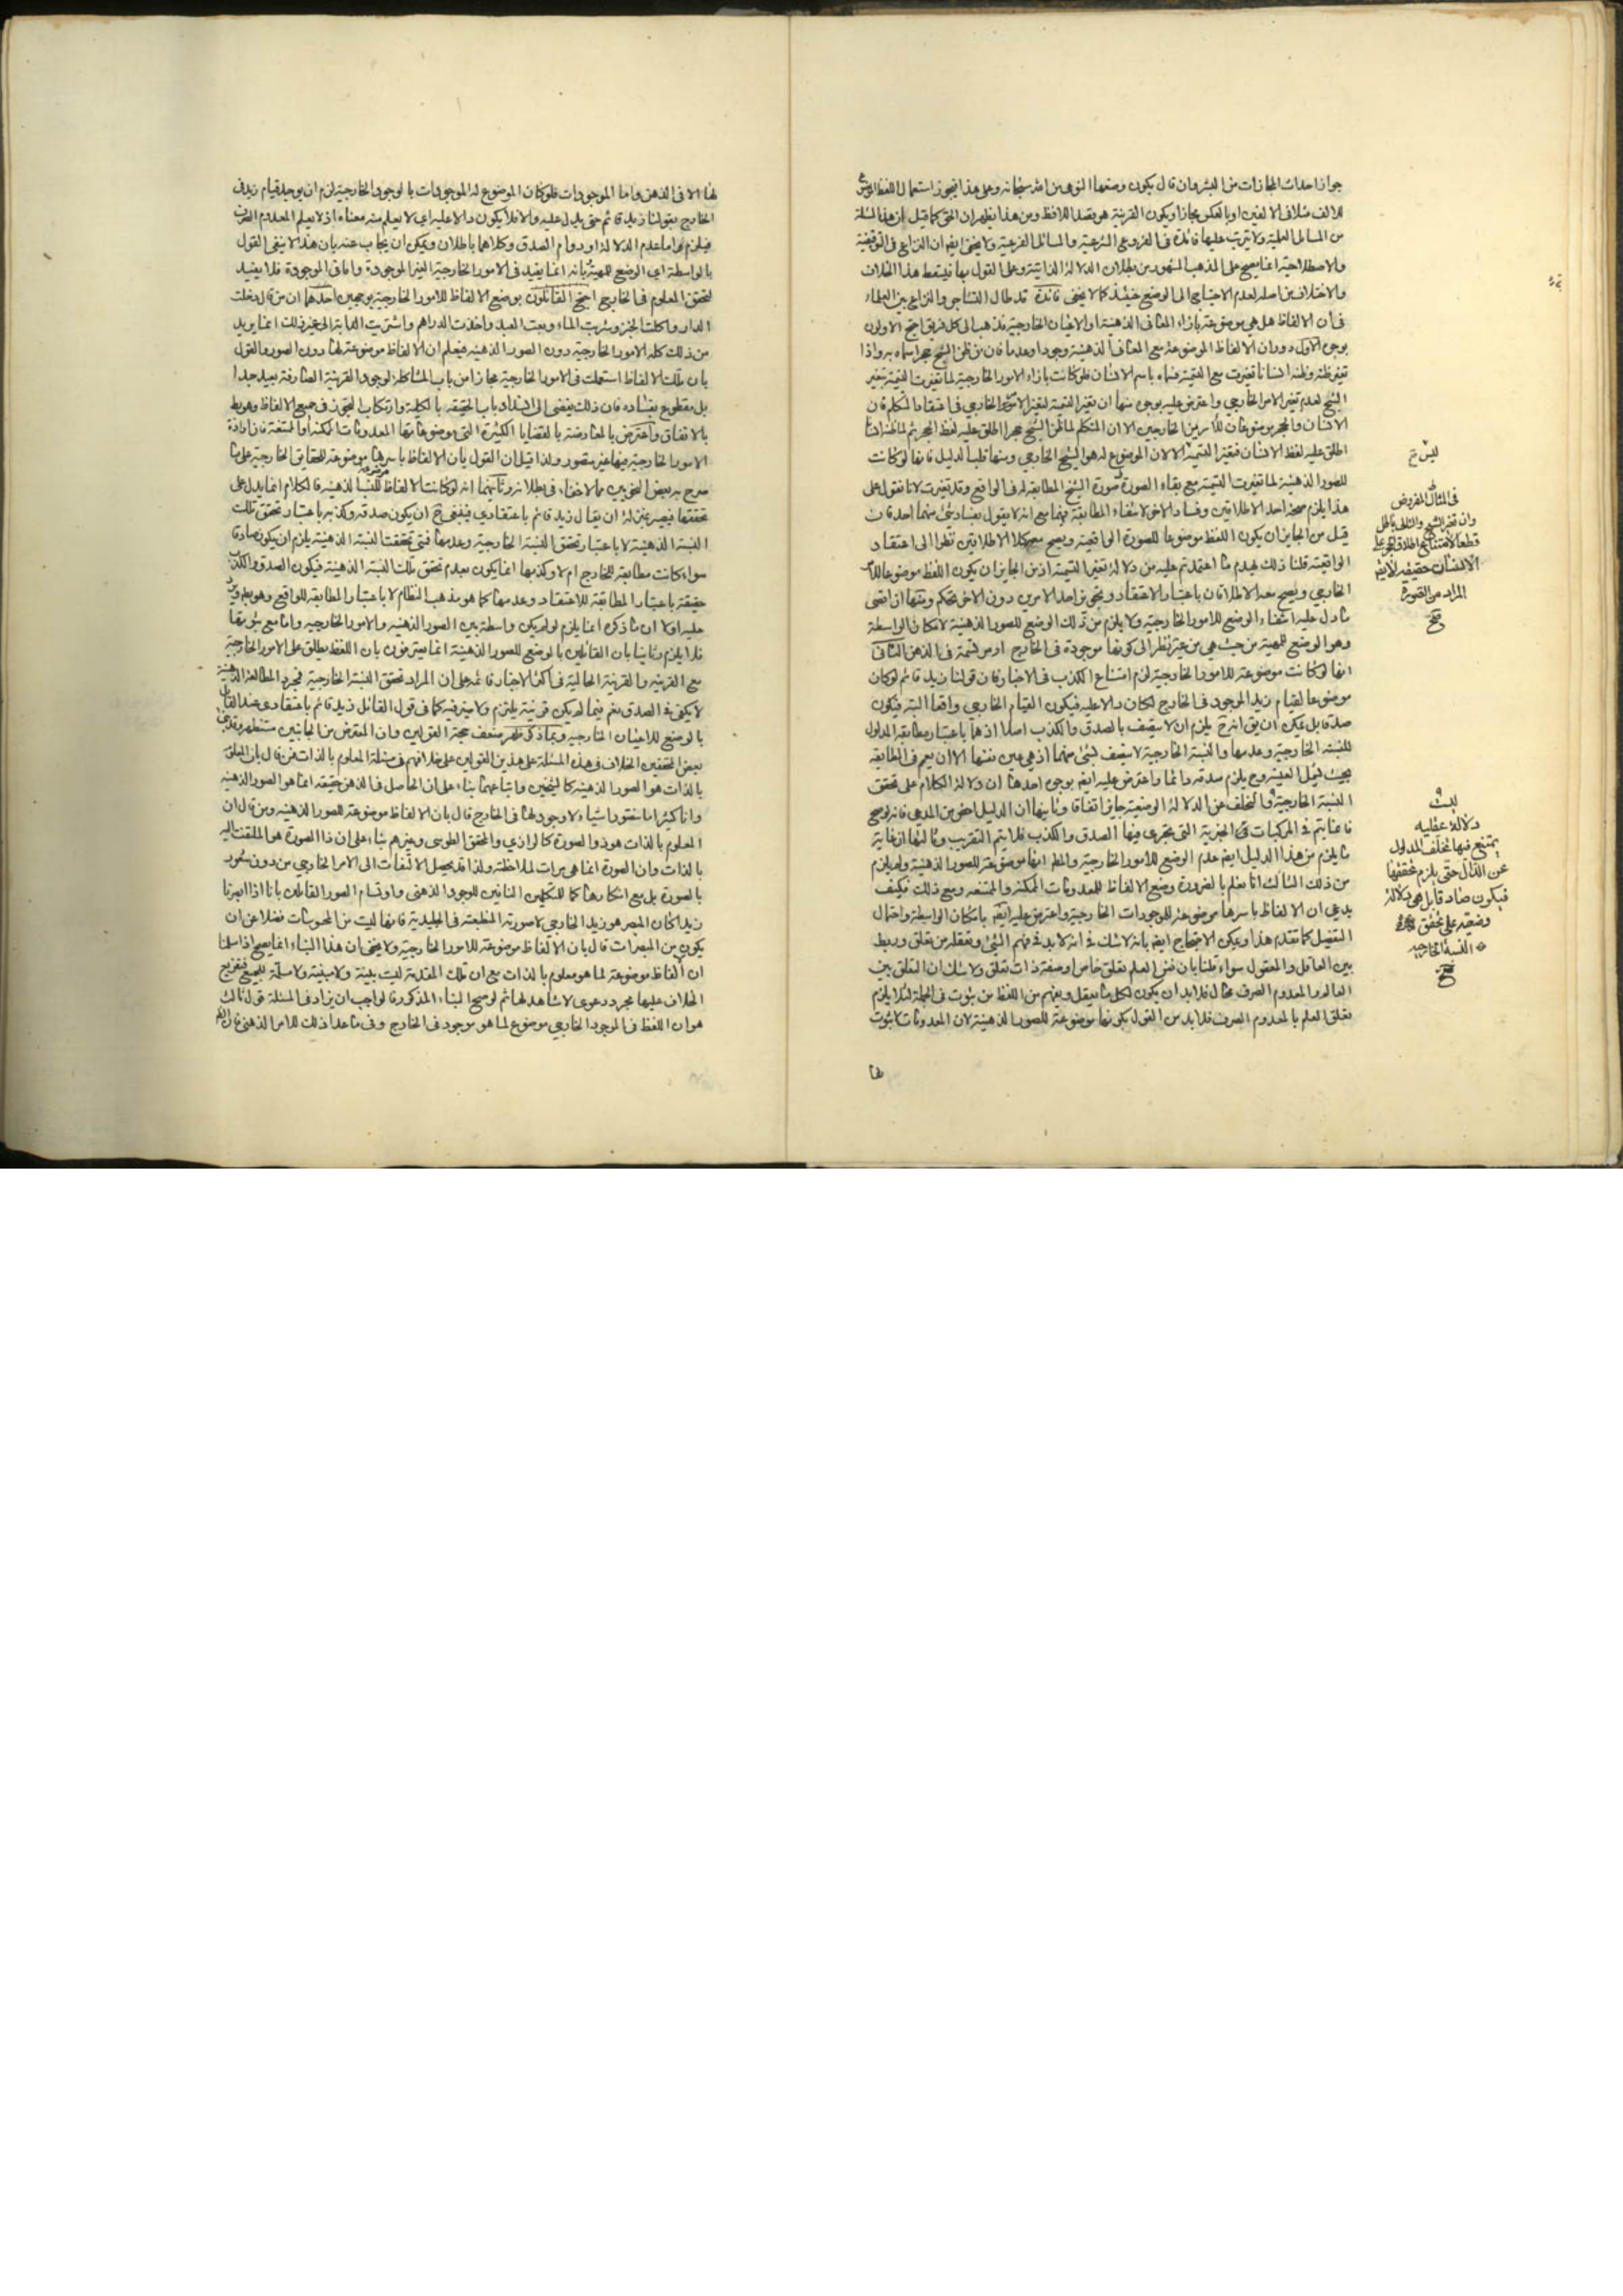 جواز احداث المجازات من البشر وان قال بكون وضعها النوعى من الله سبحانه وعلى هذا فيجوز استعمال اللفظ الموضوع
للالف مثلا فى الالفين او بالعكس مجازا ويكون القرينة هو بقصد اللافظ ومن هذا يظهر ان الحق كما قيل ان هذا المسئلة
من المسائل العلمية ولا يترتب عليها فائدة فى الفروع الشرعية والمسائل الفرعية ولا يخفى ايضا ان النزاع فى التوقيفية
والاصطلاحية انما يصح على المذهب المشهور من بطلان الدلالة الذاتية وعلى القول بها فيسقط هذا الخلاف
والاختلاف من اصله لعدم الاحتياج الى الوضع حينئذ كما لا يخفى فائدة قد طال التشاجر والنزاع بين العلماء
فى ان الالفاظ هل هى موضوعة بازاء المعانى الذهنية او الاعيان الخارجية فذهب الى كل فريق احتج الاولون
بوجوه الاول دوران الالفاظ الموضوعة مع المعانى الذهنية وجودا وعدما فان من ظن الشبح حجرا سماه به واذا
تغير ظنه وظنه انسانا تغيرت مع التسمية فسماه باسم الانسان فلو كانت بازاء الامور الخارجية لما تغيرت التسمية بتغير
الشبح لعدم تغير الامر الخارجى واعترض عليه بوجوه منها ان تغير التسمية لتغير الامر الخارجى فى اعتقاد المتكلم فان
الانسان والحجر موضوعان للامرين الخارجين الا ان المتكلم لما ظن الشبح حجرا اطلق عليه لفظ الحجر ثم لما ظنه انسانا
اطلق عليه لفظ الانسان فتغير التسمية لا لان الموضوع له هو الشبح الخارجى ومنها قلب الدليل فانها لو كانت
للصور الذهنية لما تغيرت التسمية مع بقاء الصورة صورة الشبح المطابقة له فى الواقع وقد تغيرت لانا نقول على
هذا يلزم صحة احد الاطلاقين وفساد الاخر لانتفاء المطابقة فيهما مع انه لا يقول بفساد شئ منهما احد فان
قيل من الجايز ان يكون اللفظ موضوعا للصورة الواقعية ويصح معه كلا الاطلاقين نظرا الى اعتقاد
الواقعية قلنا ذلك يهدم ما اعتمدتم عليه من دلالة تغير التسمية اذ من الجايز ان يكون اللفظ موضوعا للامر
الخارجى ويصح معه الاطلاقان باعتبار الاعتقاد وتجويز احد الامرين دون الاخر تحكم ومنها ان اقصى
ما دل عليه انتفاء الوضع للامور الخارجية ولا يلزم من ذلك الوضع للصور الذهنية لامكان الواسطة
وهو الوضع للمهية من حيث هى من غير نظر الى كونها موجودة فى الخارج او مرتسمة فى الذهن الثانى
انها لو كانت موضوعة للامور الخارجية لزم امتناع الكذب فى الاخبار فان قولنا زيد قائم لو كان
موضوعا لقيام زيد الموجود فى الخارج لكان دالا عليه فيكون القيام الخارجى واقعا البتة فيكون
صدقا بل يمكن ان يق انه ح يلزم ان لا يتصف بالصدق والكذب اصلا اذ هما باعتبار مطابقة المدلول
للنسبة الخارجية وعدمها والنسبة الخارجية لا يتصف بشئ منهما اذ هى عين نفسها الا ان يعم فى المطابقة
بحيث يشمل العينية وح يلزم صدقه دائما واعترض عليه ايضا بوجوه احدها ان دلالة الكلام على تحقق
النسبة الخارجية والتخلف عن الدلالة الوضعية جايز اتفاقا وثانيها ان الدليل اخص من المدعى فانه لو صح
فانما يتم فى المركبات الخبرية التى يجرى فيها الصدق والكذب فلا يتم التقريب وثالثها ان غاية
ما يلزم من هذا الدليل ايضا عدم الوضع للامور الخارجية والمط انها موضوعة للصور الذهنية ولم يلزم
من ذلك الثالث انا نعلم بالضرورة وضع الالفاظ للمعدومات الممكنة والممتنعه ومع ذلك فكيف
يدعى ان الالفاظ باسرها موضوعة للموجودات الخارجية واعترض عليه ايضا بامكان الواسطة واحتمال
التفصيل كما تقدم هذا ويمكن الاحتجاج ايضا بانه لا شك فى انه لا بد فى فهم الشئ وتعقله من تعلق وربط
بين العاقل والمعقول سواء قلنا بان نفس العلم تعلق خاص او صفة ذات تعلق ولا شك ان التعلق بين
العالم والمعدوم الصرف محال فلا بد ان يكون لكل ما يعقل ويفهم من اللفظ من ثبوت فى الجملة لئلا يلزم
تعلق العلم بالمعدوم الصرف فلا بد من القول بكونها موضوعة للصور الذهنية لان المعدومات لا ثبوت
لها
ليس ح
فى المثال المفروض
وان تغير الشبح والتالى باطل
قطعا لامتناع اطلاق الحجر على
الانسان حقيقة لا يق
المراد من الصورة
صح
ليست
دلالة عقلية
يمتنع فيها تخلف المدلول
عن الدال حتى يلزم تحققها
فيكون صادقا بل هى دلالة
وضعية على تحقق
النسبة الخارجية
صح
لها الا فى الذهن واما الموجودات فلو كان الموضوع له الموجودات بالوجود الخارجية لزم ان يوجد قيام زيد فى
الخارج بقولنا زيد قائم حتى يدل عليه والا فلا يكون دالا عليه اى لا يعلم منه معناه اذ لا يعلم المعدوم الصرف
فيلزم اما عدم الدلالة او دوام الصدق وكلاهما باطلان ويمكن ان يجاب عنه بان هذا لا ينفى القول
بالواسطة اى الوضع للمهية بانه انما يفيد فى الامور الخارجية الغير الموجودة واما فى الموجودة فلا يفيد
لتحقق المعلوم فى الخارج احتج القائلون بوضع الالفاظ للامور الخارجية بوجهين احدهما ان من قال دخلت
الدار واكلت الخبز وشربت الماء وبعت العبد واخذت الدراهم واشتريت الدابة الى غير ذلك انما يريد
من ذلك كله الامور الخارجية دون الصور الذهنية فيعلم ان الالفاظ موضوعة لها دون الصور والقول
بان تلك الالفاظ استعملت فى الامور الخارجية مجازا من باب المشاكلة لوجود القرينة الصارفة بعيد جدا
بل مقطوع بفساده فان ذلك يفضى الى انسداد باب الحقيقه بالكلية وارتكاب التجوز فى جميع الالفاظ وهو بط
بالاتفاق واعترض بالمعارضة بالقضايا الكثيرة التى موضوعاتها المعدومات الممكنة او الممتنعة فان ارادة
الامور الخارجية فيها غير مقصور ولذا قيل ان القول بان الالفاظ باسرها موضوعة للحقايق الخارجية على ما
صرح به بعض النحويين مما لا خفاء فى بطلانه وثانيهما انه لو كانت الالفاظ موضوعة للنسب الذهنية فالكلام انما يدل على
تحققها فيصير بمنزلة ان يقال زيد قائم باعتقادى فينبغى ح ان يكون صدقه وكذبه باعتبار تحقق تلك
النسبة الذهنية لا باعتبار تحقق النسبة الخارجية وعدمها فمتى تحققت النسبة الذهنية يلزم ان يكون صادقا
سواء كانت مطابقة للخارج ام لا وكذبها انما يكون بعدم تحقق تلك النسبة الذهنية فيكون الصدق والكذب
حقيقة باعتبار المطابقة للاعتقاد وعدمها كما هو مذهب النظام لا باعتبار المطابقة للواقع وهو بط ويرد
عليه اولا ان ما ذكره انما يلزم لو لم يكن واسطة بين الصور الذهنية والامور الخارجية واما مع ثبوتها
فلا يلزم وثانيا بان القائلين بالوضع للصور الذهنية انما يعترفون بان اللفظ يطلق على الامور الخارجية
مع القرينه والقرينة الحالية فى اكثر الاخبار قائمة على ان المراد تحقق النسبة الخارجية فمجرد المطابقة الذهنية
لا يكفى فى الصدق نعم فيما لم يكن قرينة يلتزم ولا ضير فيه كما فى قول القائل زيد قائم باعتقادى عند القائل
بالوضع للاعيان الخارجية وبما ذكر ظهر ضعف حجة القولين وان المعترض من الجانبين مستظهر وقد بنى
بعض المحققين الخلاف فى هذه المسئلة على هذين القولين على خلافهم فى مسئلة المعلوم بالذات فمن قال بان المعلوم
بالذات هو الصور الذهنية كالشيخين واتباعهما بناء على ان الحاصل فى الذهن حقيقة انما هو الصور الذهنية
وانا كثيرا ما نتصور اشياء ولا وجود لها فى الخارج قال بان الالفاظ موضوعة للصور الذهنية ومن قال ان
المعلوم بالذات هو ذو الصورة كالرازى والمحقق الطوسى وغيرهم بناء على ان ذا الصورة هو الملتفت اليه
بالذات وان الصورة انما هى مرات لملاحظته ولذا قد يحصل الالتفات الى الامر الخارجى من دون شعور
بالصورة بل مع انكارها كما للمتكلمين النافين للوجود الذهنى وارتسام الصور القائلين بانا اذا ابصرنا
زيدا كان المبصر هو زيد الخارجى لا صورته المنطبعة فى الجليدية فانها ليست من المحسوسات فضلا عن ان
يكون من المبصرات قال بان الالفاظ موضوعة للامور الخارجية ولا يخفى ان هذا البناء انما يصح اذا سلمنا
ان الفاظ موضوعة لما هو معلوم بالذات مع ان تلك المقدمة ليست بينة ولا مبينة ولا مسلمة للجميع فتفريع
الخلاف عليها مجرد دعوى لا شاهد لها ثم لو صح البناء المذكور فالواجب ان يزاد فى المسئلة قول ثالث
هو ان اللفظ فى الموجود الخارجى موضوع لما هو موجود فى الخارج وفى ما عدا ذلك للامر الذهنى